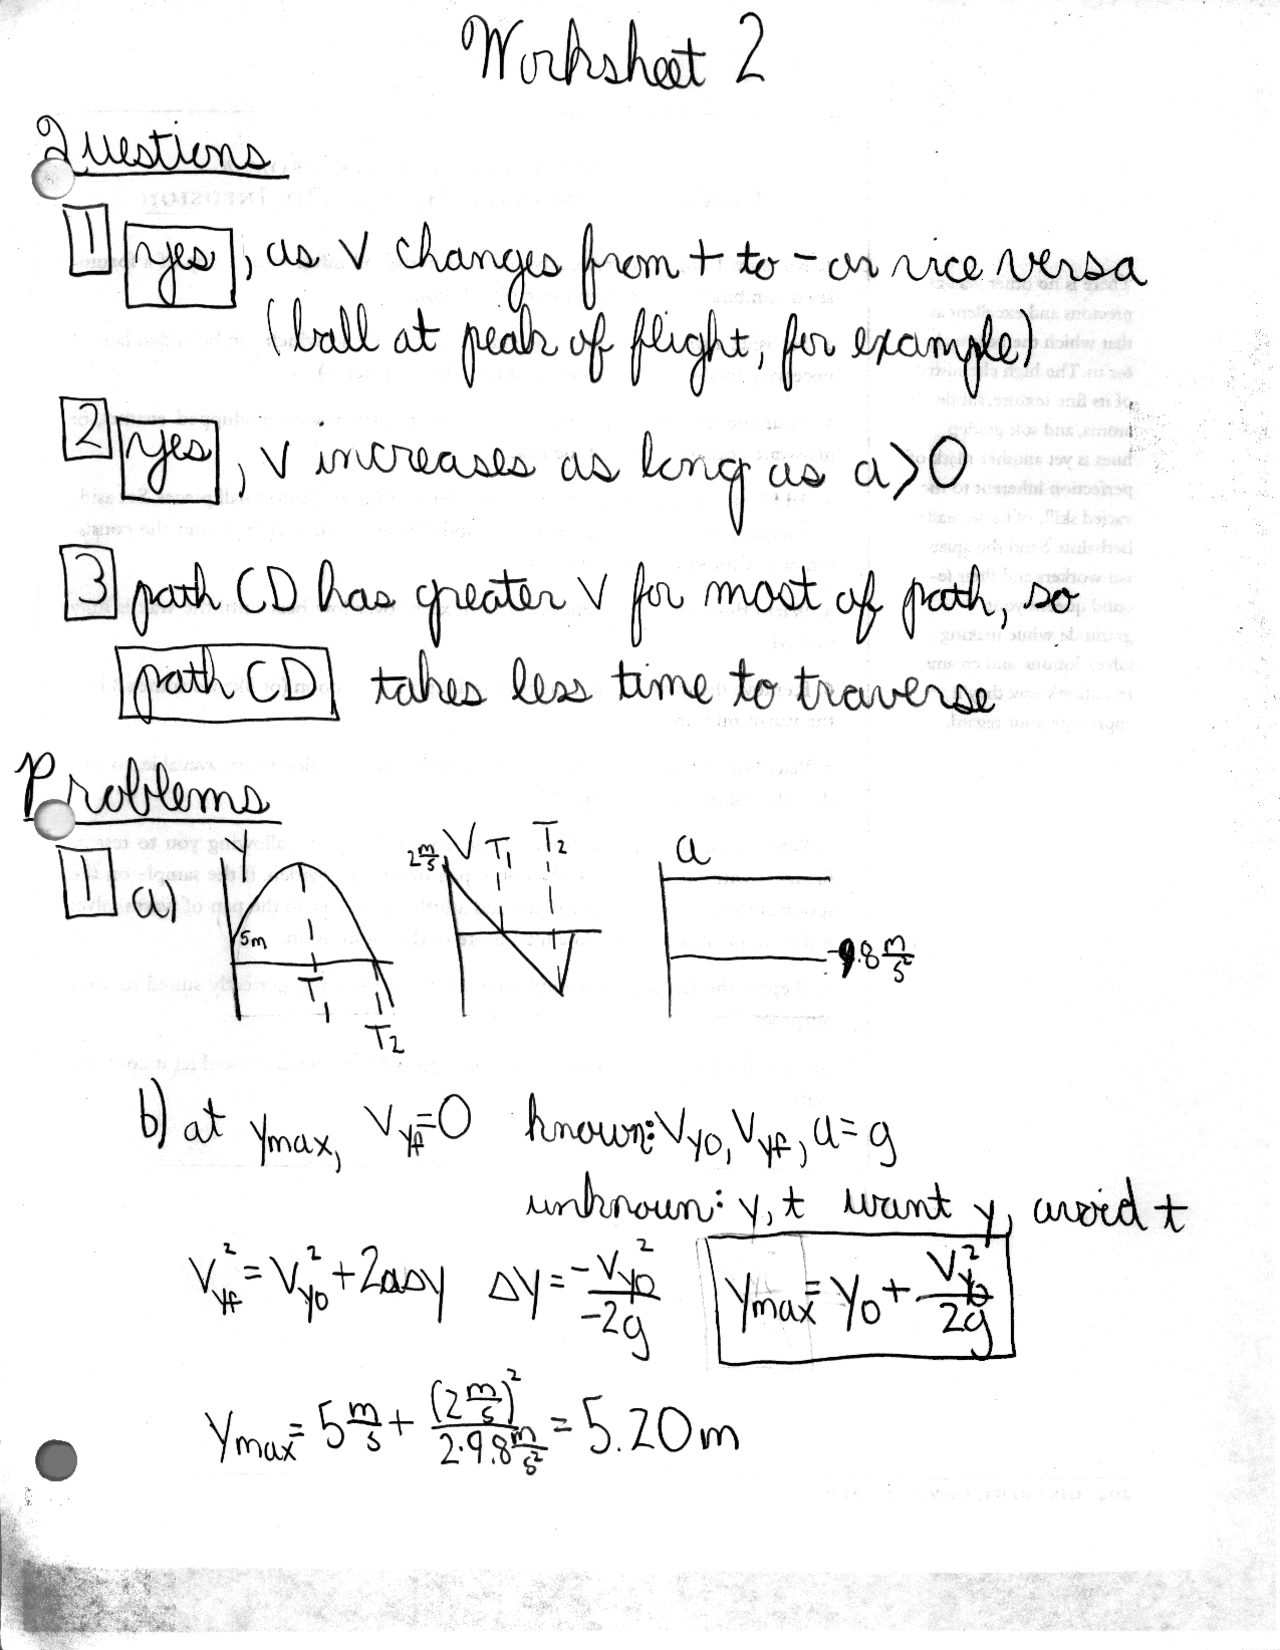 Worksheet 2
Questions
1 yes, as v changes from + to - or vice versa
(ball at peak of flight, for example)
2 yes, v increases as long as a>0
3 path CD has greater v for most of path, so
path CD takes less time to traverse
Problems
1 a) y 5m T1 T2
2 m/s V T1 T2
a -9.8 m/s²
b) at ymax, Vyf=0 known: Vyo, Vyf, a=g
unknown: y, t want y, avoid t
Vyf² = Vyo² + 2aΔy Δy = -Vyo²/-2g ymax = yo + Vyo²/2g
ymax = 5 m/s + (2 m/s)²/2·9.8 m/s² = 5.20m